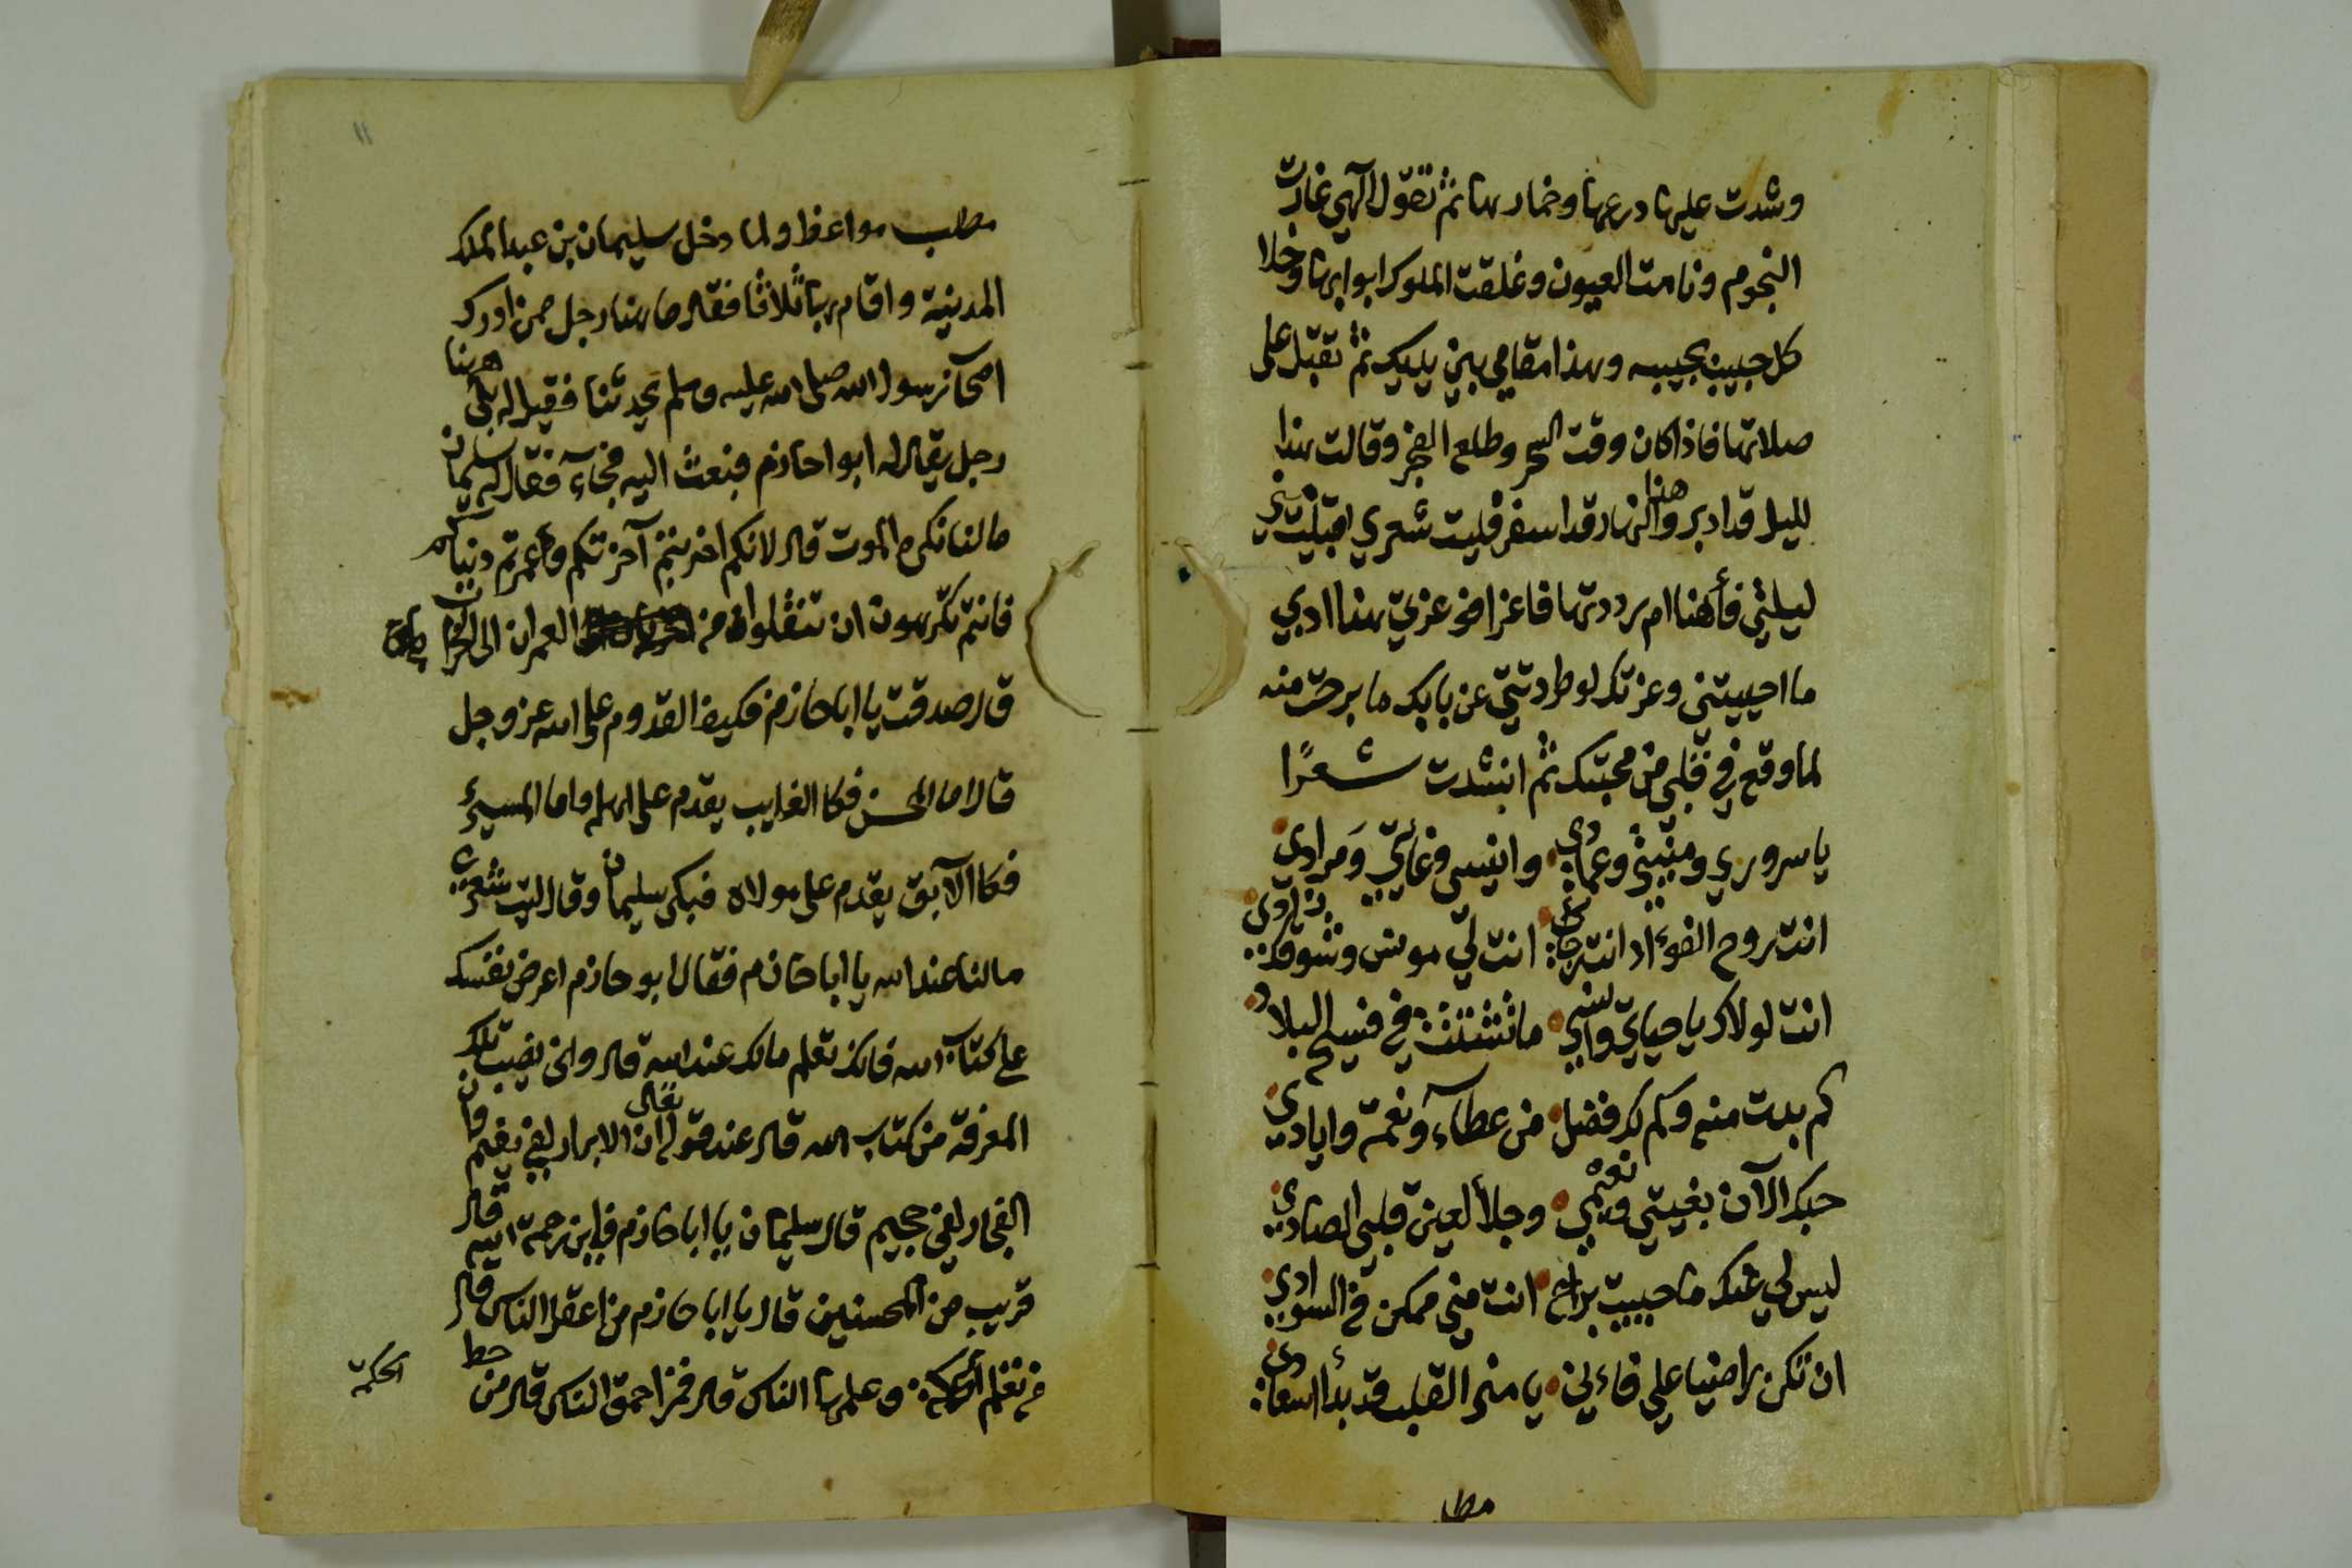 وشدت عليها درعها وخمارها ثم تقول الهي غارت
النجوم ونامت العيون وغلقت الملوك ابوابها وخلا
كل حبيب بحبيبه وهذا مقامي بين يديك ثم تقبل على
صلاتها فاذا كان وقت السحر وطلع الفجر وقالت هذا
لليل قد ادبر وهذا النهار قد اسفر فليت شعري اقبلت مني
ليلتي فأهنا ام رددتها فاعزا فو عزتك هذا ادبي
ما احييتني وعزتك لو طردتني عن بابك ما برحت منه
لما وقع في قلبي من محبتك ثم انشدت شعرًا
يا سروري ومنيتي وعمادي وانيسي وغايتي ومرادي
انت روح الفوءاد انت رجائي انت لي مونس وشوقك زادي
انت لولاك يا حياتي وانسي ما تشتت في فسيح البلاد
كم بدت منه وكم لك فضل من عطآء ونعمة وايادي
حبك الآن بغيتي ونعيمي وجلأ لعين قلبي الصادي
ليس لي عنك ما حييت براح انت مني ممكن في السوادي
ان تكن راضيا علي فاءني يا منى القلب قد بدأ اسعادي
مطل
١١
مطلب مواعظ ولما دخل سليمان بن عبد الملك
المدينة واقام بها ثلاثا فقال ما هنا رجل ممن ادرك
اصحآب رسول الله صلى الله عليه وسلم يحدثنا فقيل له بلى ههنا
رجل يقال له ابوا حازم فبعث اليه فجآء فقال له سليمان
ما لنا نكره الموت قال لانكم اخربتم آخرتكم وعمرتم دنياكم
فانتم تكرهون ان تنقلوا من العمران الى الخراب
قال صدقت يا ابا حازم فكيف القدوم على الله عز وجل
قال اما المحسن فكا الغايب يقدم على اهله واما المسيء
فكا الآبق يقدم على مولاه فبكى سليمان وقال ليت شعري
ما لنا عند الله يا ابا حازم فقال ابو حازم اعرض نفسك
على كتآب الله فانك تعلم ما لك عند الله قال وانى نصيب تلك
المعرفة من كتاب الله قال عند قوله تعالى ان الابرار لفي نعيم وان
الفجار لفي جحيم قال سليمان يا ابا حازم فاين رحمة الله قال
قريب من المحسنين قال يا ابا حازم من اعقل الناس قال
من تعلم الحكمة وعلمها الناس قال فمن احمق الناس قال من حط
الحكمة